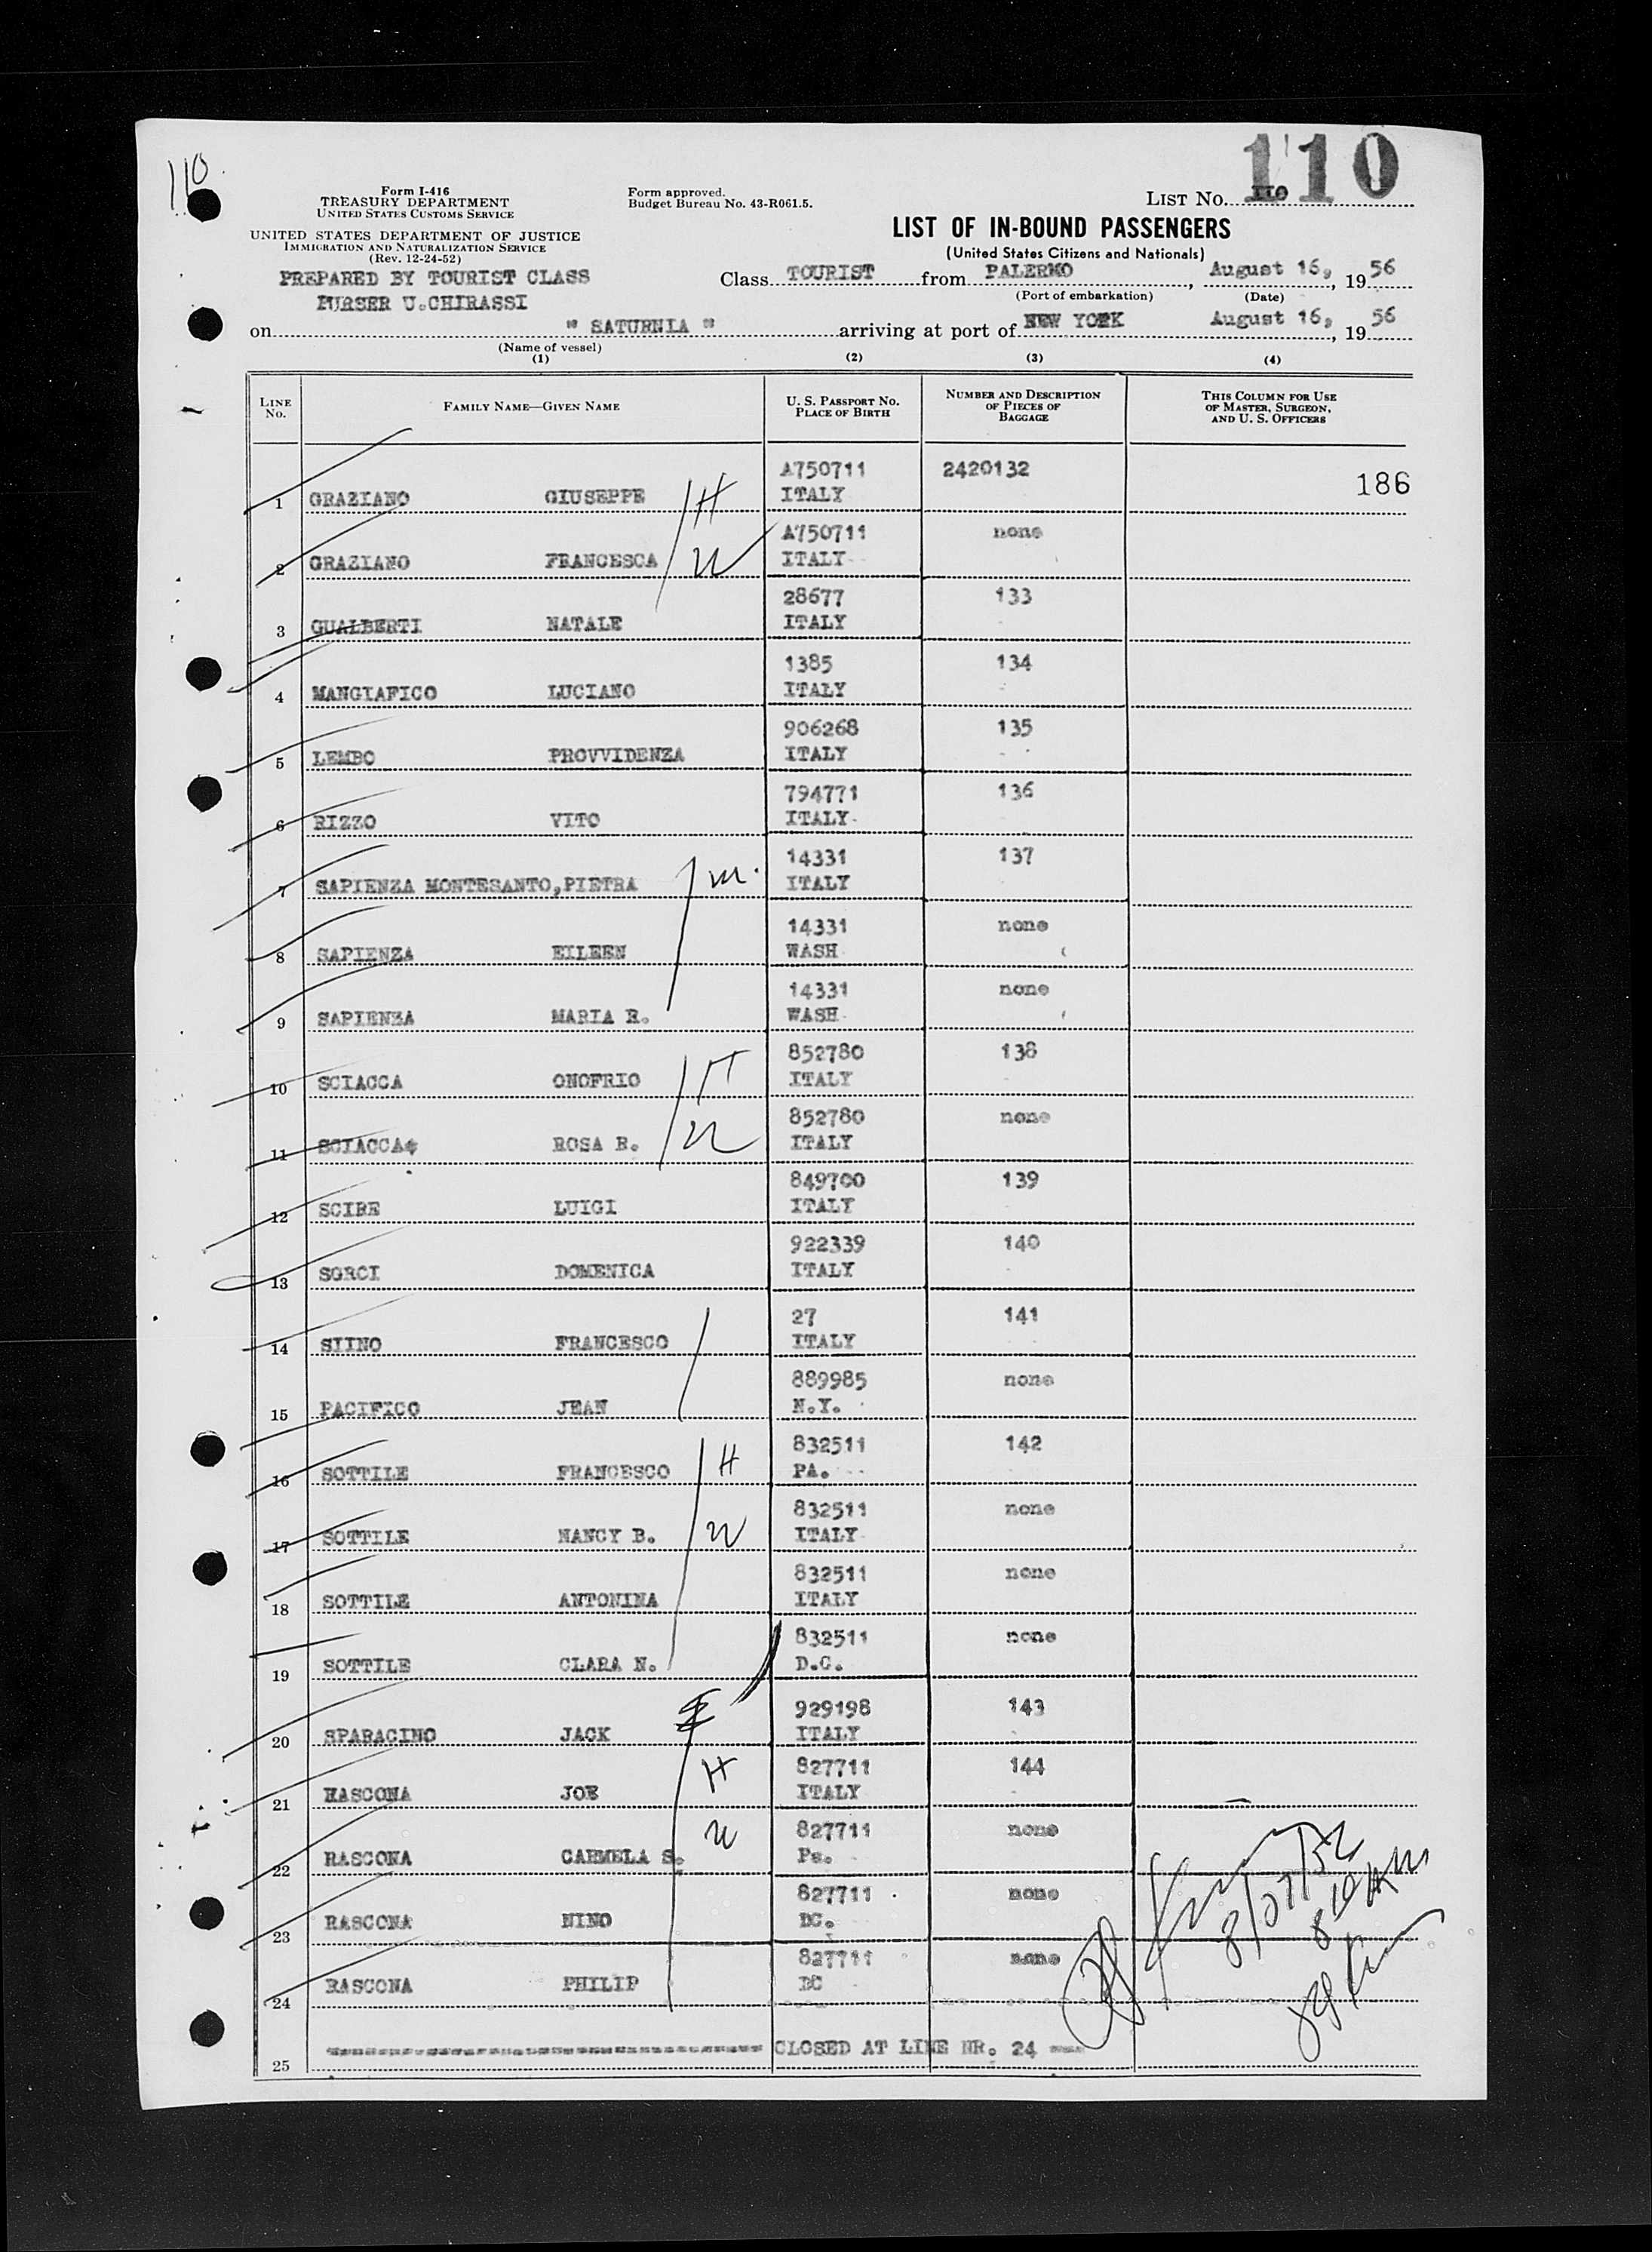 110
110
Form I-416
TREASURY DEPARTMENT
UNITED STATES CUSTOMS SERVICE
Form approved.
Budget Bureau No. 43-R061.5.
LIST No. 110
UNITED STATES DEPARTMENT OF JUSTICE
IMMIGRATION AND NATURALIZATION SERVICE
(Rev. 12-24-52)
LIST OF IN-BOUND PASSENGERS
(United States Citizens and Nationals)
PREPARED BY TOURIST CLASS
PURSER U.CHIRASSI
Class TOURIST from PALERMO, August 16, 1956
(Port of embarkation) (Date)
on " SATURNIA " arriving at port of NEW YORK August 16, 1956
(Name of vessel)
(1) (2) (3) (4)
LINE No. FAMILY NAME—GIVEN NAME U. S. PASSPORT No. PLACE OF BIRTH NUMBER AND DESCRIPTION OF PIECES OF BAGGAGE THIS COLUMN FOR USE OF MASTER, SURGEON, AND U. S. OFFICERS
A750711 2420132
1 GRAZIANO GIUSEPPE H ITALY 186
A750711 none
2 GRAZIANO FRANCESCA W ITALY
28677 133
3 GUALBERTI NATALE ITALY
1385 134
4 MANGIAFICO LUCIANO ITALY
906268 135
5 LEMBO PROVVIDENZA ITALY
794771 136
6 RIZZO VITO ITALY
14331 137
7 SAPIENZA MONTESANTO,PIETRA m. ITALY
14331 none
8 SAPIENZA EILEEN WASH
14331 none
9 SAPIENZA MARIA R. WASH
852780 138
10 SCIACCA ONOFRIO H ITALY
852780 none
11 SCIACCA ROSA B. W ITALY
849700 139
12 SCIRE LUIGI ITALY
922339 140
13 SORCI DOMENICA ITALY
27 141
14 SIINO FRANCESCO ITALY
889985 none
15 PACIFICO JEAN N.Y.
832511 142
16 SOTTILE FRANCESCO H PA.
832511 none
17 SOTTILE NANCY B. W ITALY
832511 none
18 SOTTILE ANTONINA ITALY
832511 none
19 SOTTILE CLARA N. D.C.
929198 143
20 SPARACINO JACK ITALY
827711 144
21 RASCONA JOE H ITALY
827711 none
22 RASCONA CARMELA S. W Pe.
827711 none
23 RASCONA NINO DC.
827711 none
24 RASCONA PHILIP DC
25 CLOSED AT LINE NR. 24